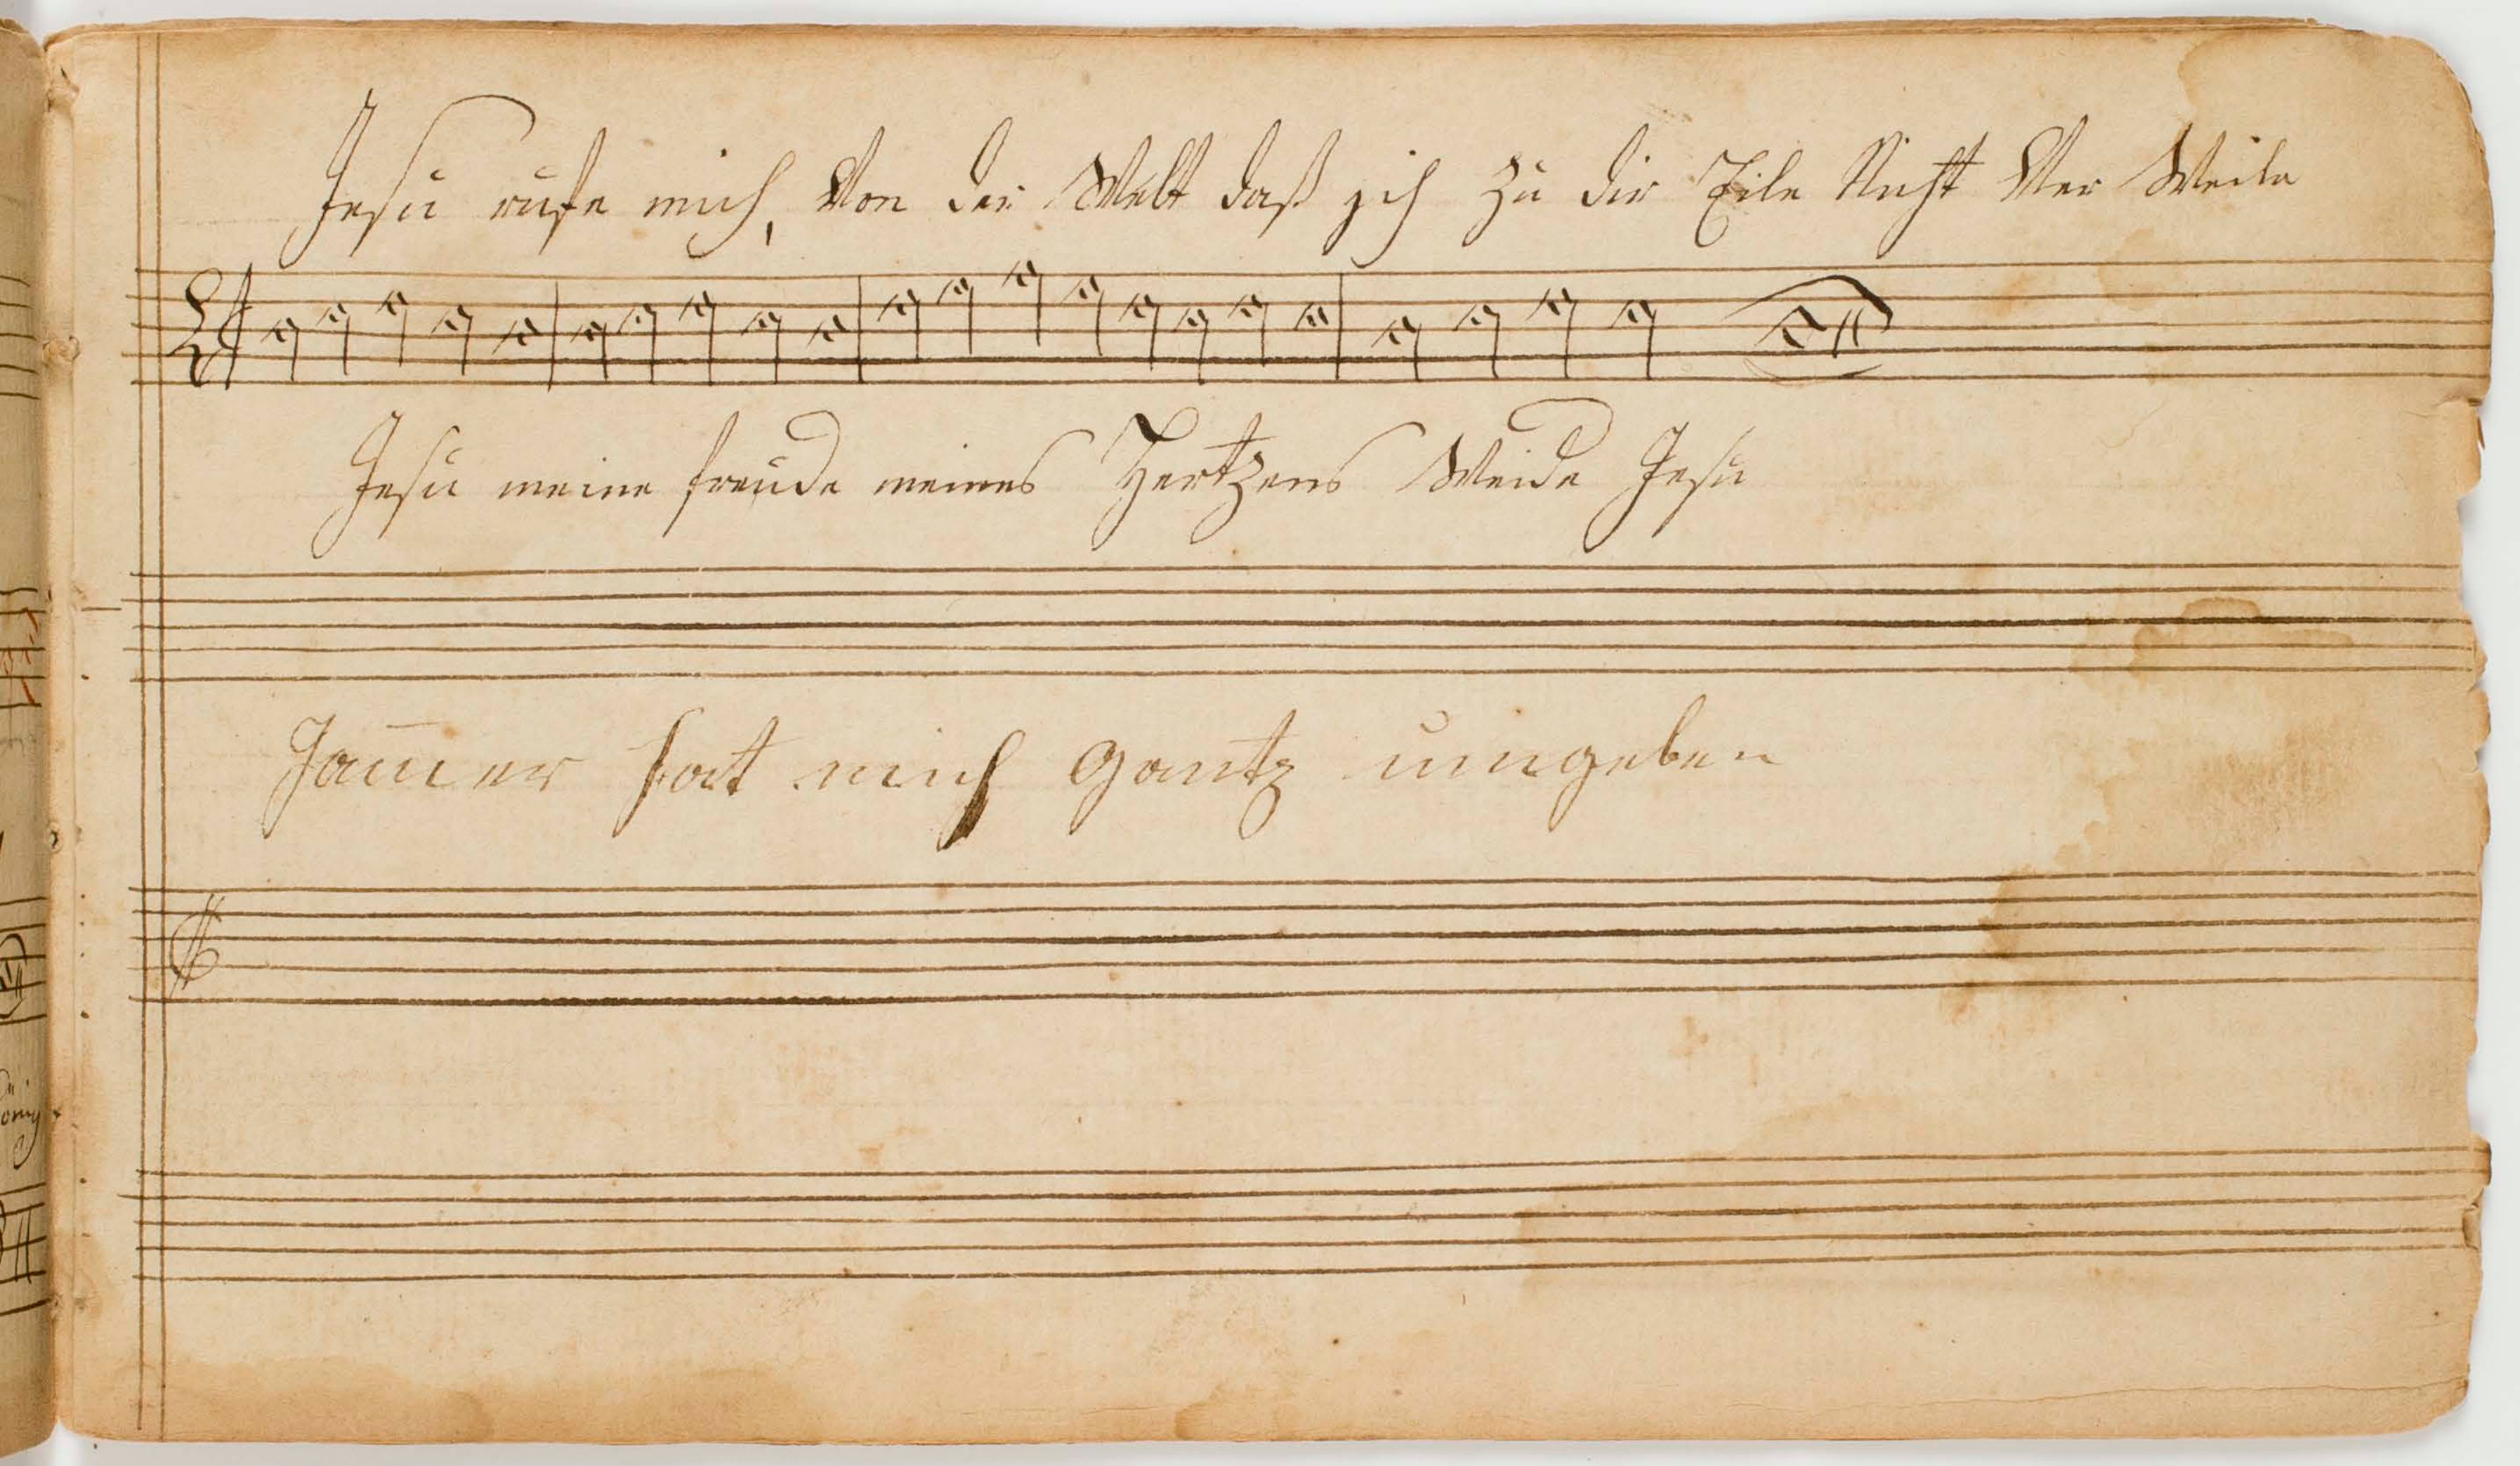 Jesu rufe mich, Von der Welt daß ich Zu dir Eile Nicht Ver Weile
Jesu meine freude meines Hertzens Weide Jesu
Jam̅er hat mich gantz umgeben